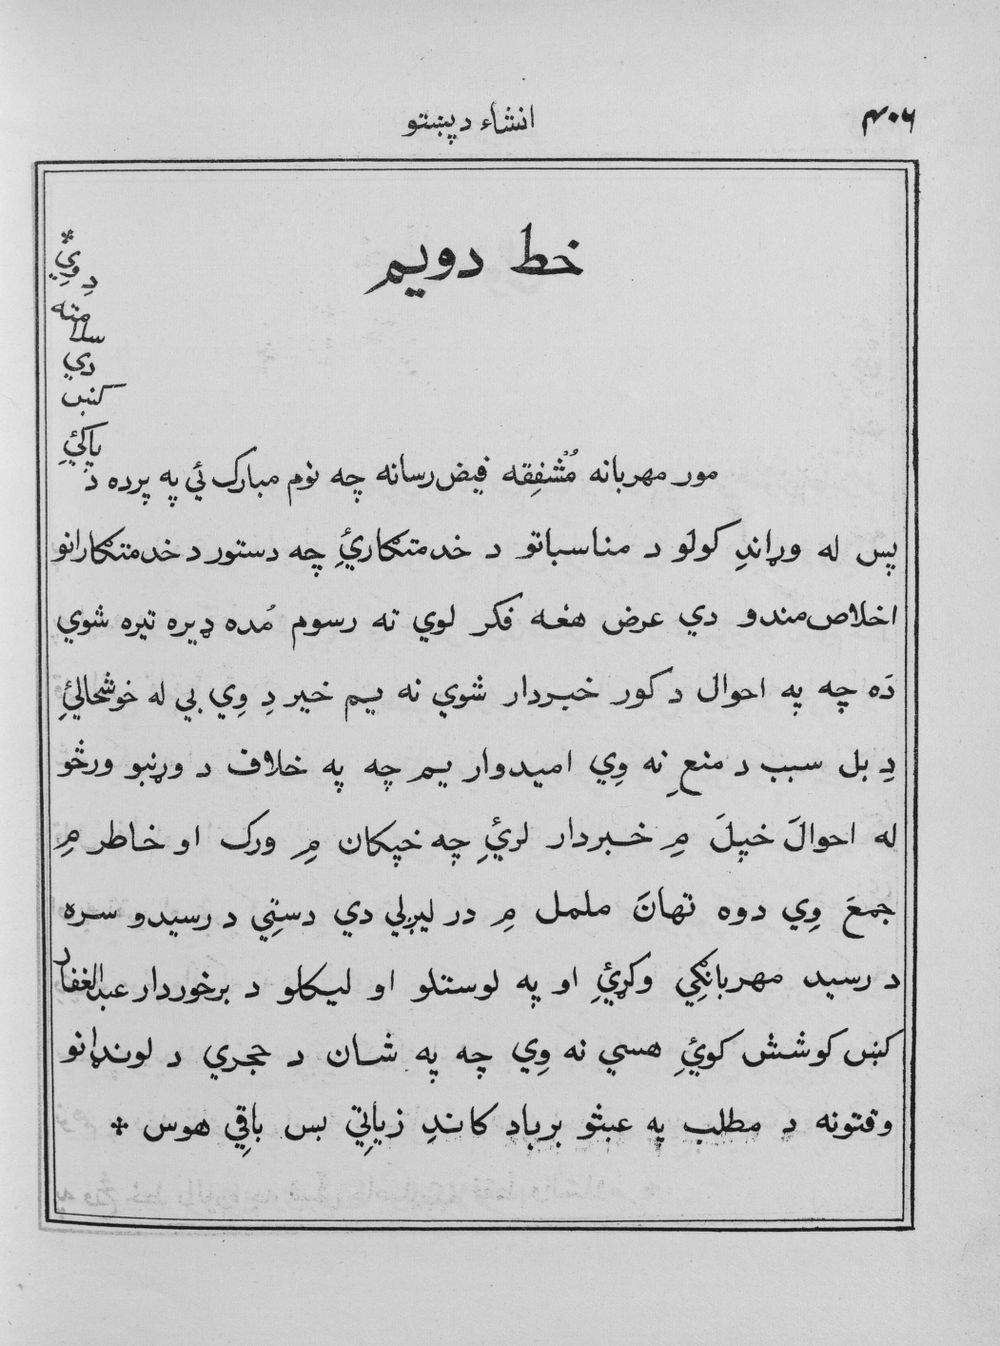 ۴۰۶
انشاء د پښتو
خط دويم
مور مهربانه مُشْفِقه فيض رسانه چه نوم مبارک ئي په پرده د
پاکئِ
کښ
دي
سلامته
دِ وِي *
پس له وړاندِ کولو د مناسباتو د خدمتګارئِ چه دستور د خدمتګارانو
اخلاص مندو دي عرض هغه فکر لوي ته رسوم مُده ډيره تيره شوي
دَه چه په احوال د کور خبردار شوي نه يم خير دِ وِي بي له خوشحالئِ
دِ بل سبب د منعِ نه وِي اميدوار يم چه په خلاف د وړنبو ورځو
له احوالَ خپلَ مِ خبردار لرئِ چه خپګان مِ ورک او خاطر مِ
جمعَ وِي دوه تهانَ ململ مِ در ليږلي دي دستِي د رسيدو سره
د رسيد مهربانګِي وکړئِ او په لوستلو او ليکلو د برخوردار عبدالغفار
کښ کوشش کوئِ هسي نه وِي چه په شان د حجري د لونډانو
وقتونه د مطلب په عبثو برباد کاندِ زياتِي بس باقِي هوس *